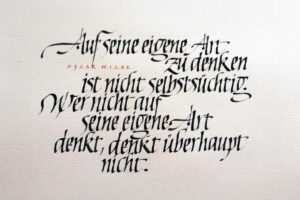 Auf seine eigene Art
zu denken
OSCAR WILDE
ist nicht selbstsüchtig.
Wer nicht auf
seine eigene Art
denkt, denkt überhaupt
nicht.